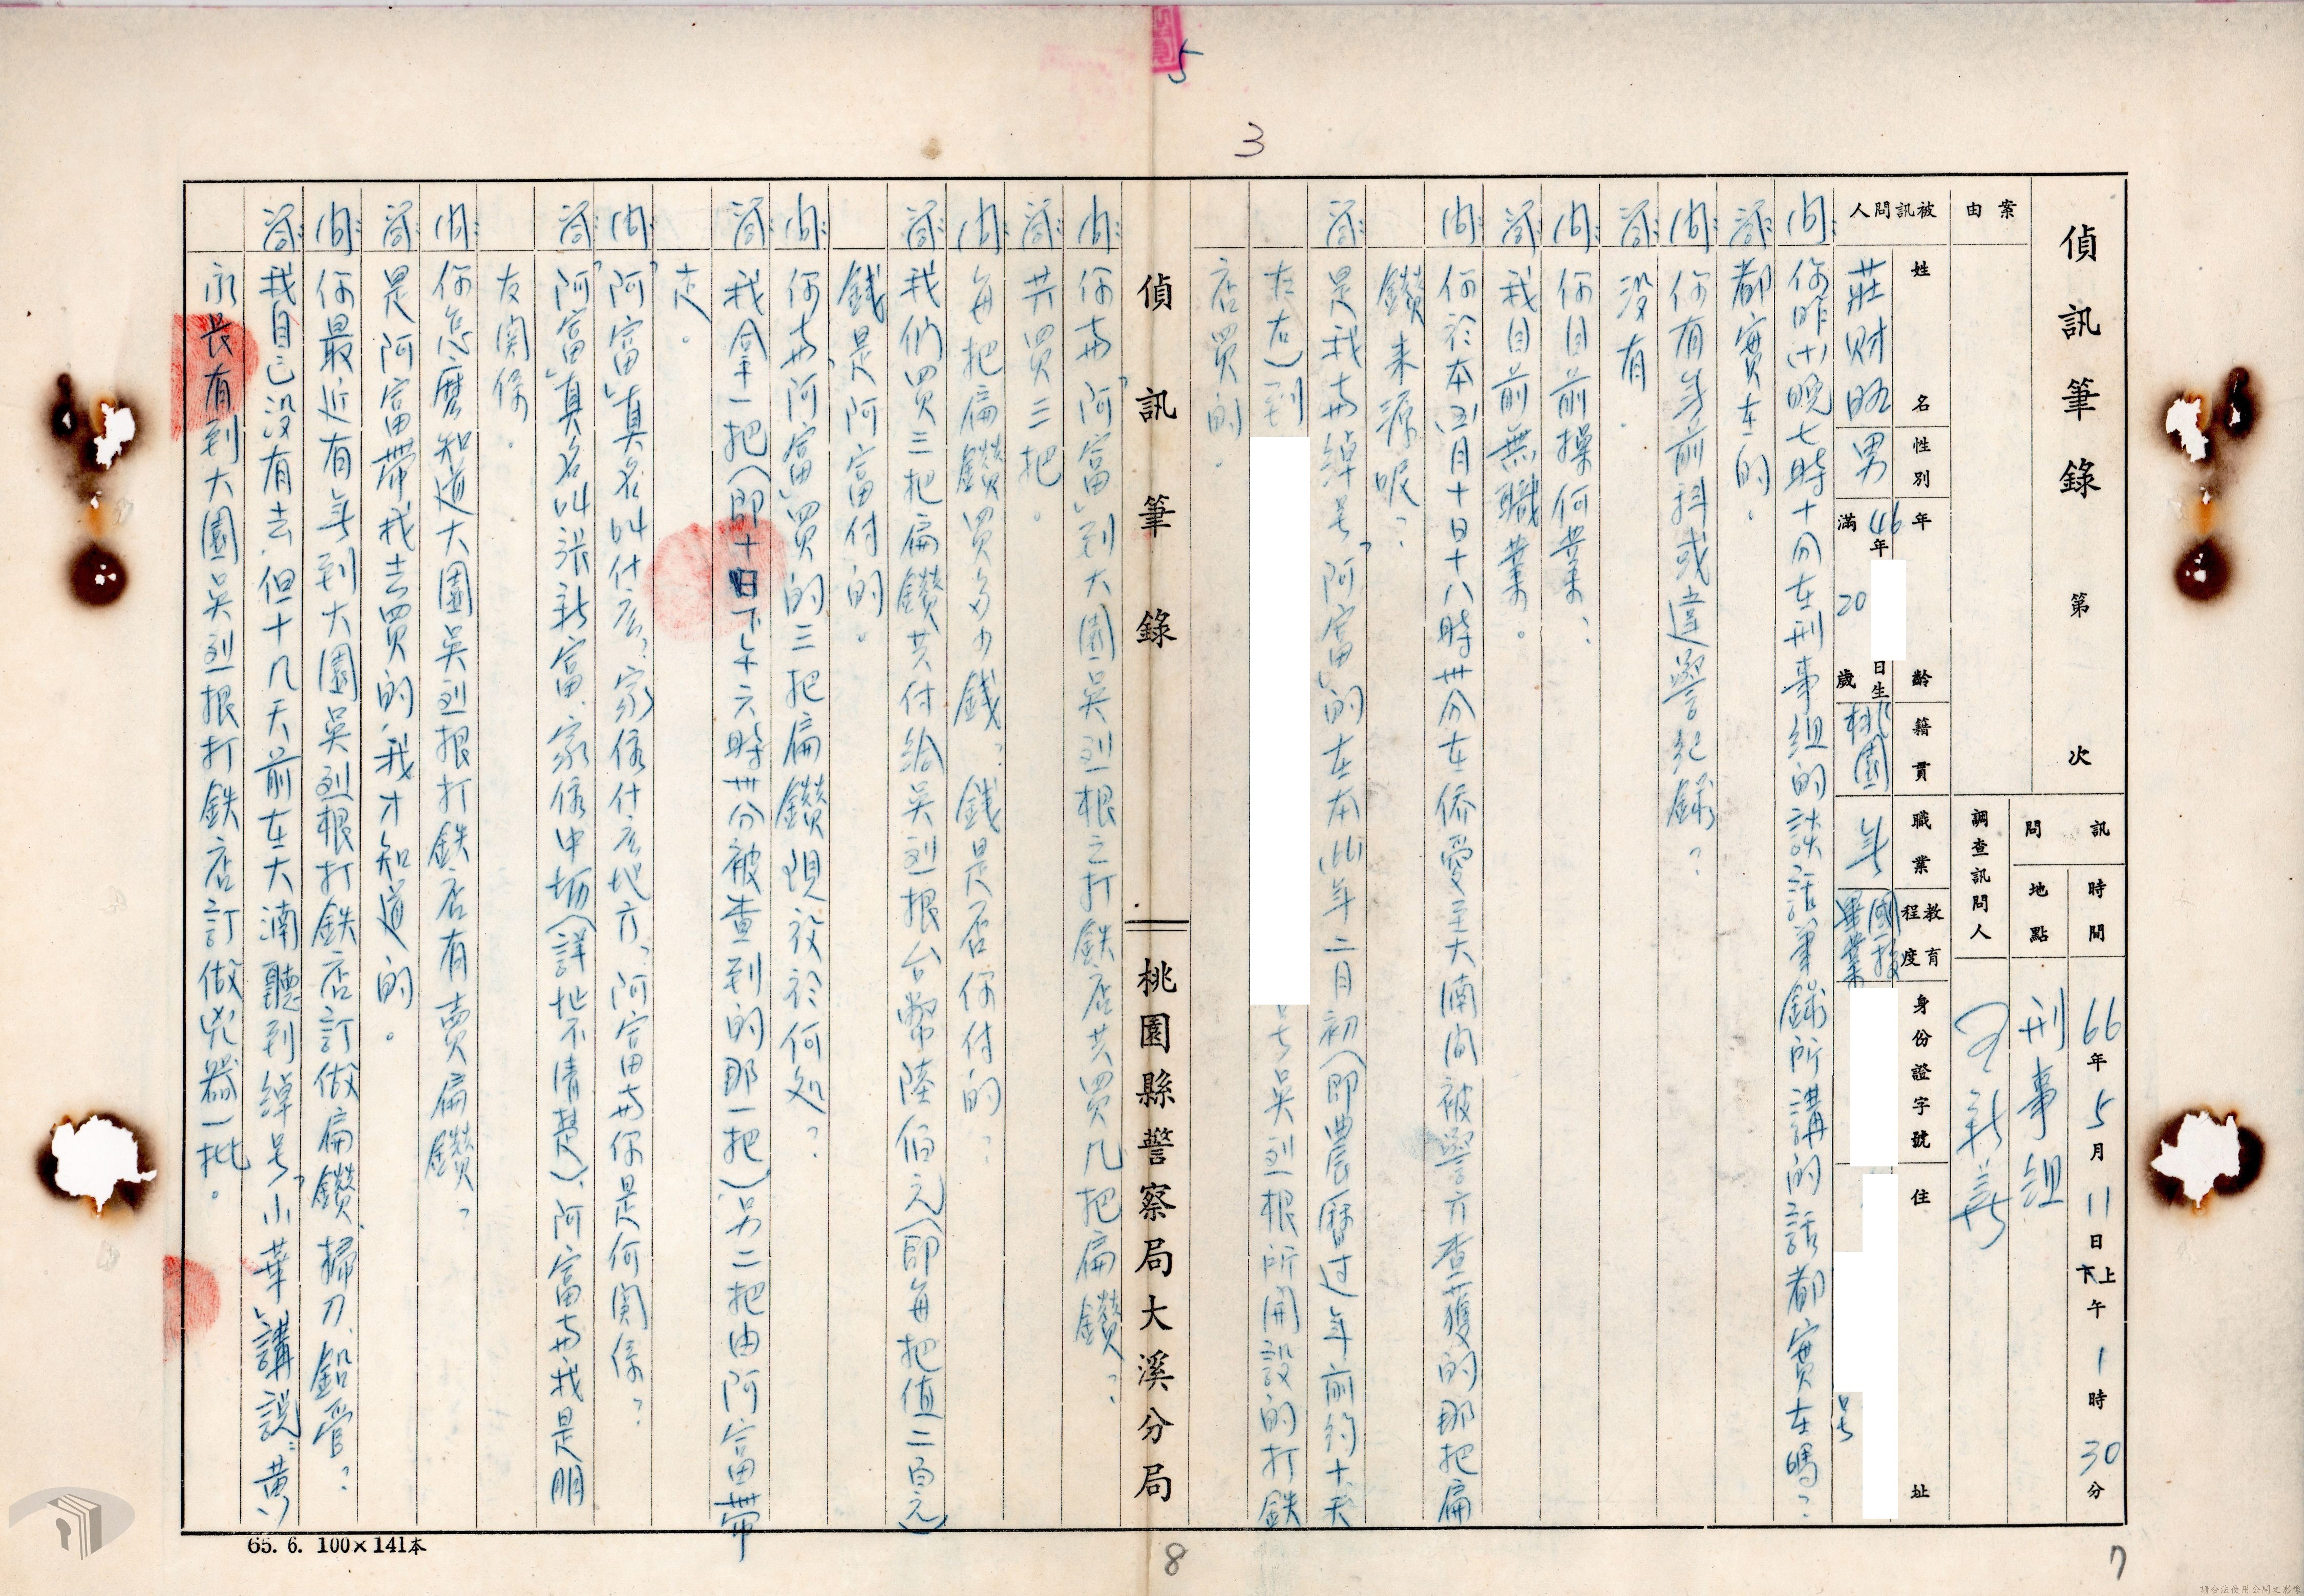 5
3
偵訊筆錄 第 次
訊問
時間 66年5月11日上下午1時30分
地點 刑事組
調查訊問人 王新義
案由
被訊問人
姓名 莊財略
性別 男
年齡 46年 日生 滿20歲
籍貫 桃園
職業 無
教育程度 國校畢業
身份證字號
住址 號
問:你昨(十)晚七時十分在刑事組的談話筆錄所講的話都實在嗎?
答:都實在的。
問:你有無前科或違警紀錄?
答:沒有。
問:你目前操何業?
答:我目前無職業。
問:你於本(五)月十日十八時卅分在僑愛至大湳間被警方查獲的那把扁
鑽來源呢?
答:是我與綽号「阿富」的在本(66)年二月初(即農曆过年前約十天
左右)到
号吳烈根所開設的打鉄
店買的。
偵訊筆錄 桃園縣警察局大溪分局
問:你與「阿富」到大園吳烈根之打鉄店共買几把扁鑽?
答:共買三把。
問:每把扁鑽買多少錢?錢是否你付的?
答:我們買三把扁鑽共付給吳烈根台幣陸佰元(即每把值二百元)
錢是阿富付的。
問:你與「阿富」買的三把扁鑽現放於何処?
答:我拿一把(即十日下午六時卅分被查到的那一把)另二把由阿富帶
走。
問:「阿富」真名叫什広?家住什広地方?阿富與你是何関係?
答:「阿富」真名叫張新富,家住中坜(詳址不清楚),阿富與我是朋
友関係。
問:你怎麼知道大園吳烈根打鉄店有賣扁鑽?
答:是阿富帶我去買的,我才知道的。
問:你最近有無到大園吳烈根打鉄店訂做扁鑽、掃刀、鉛管?
答:我自己沒有去,但十几天前在大湳聽到綽号「小華」講說:黃
永長有到大園吳烈根打鉄店訂做兇器一批。
65. 6. 100×141本
8
7
請合法使用公開之影像